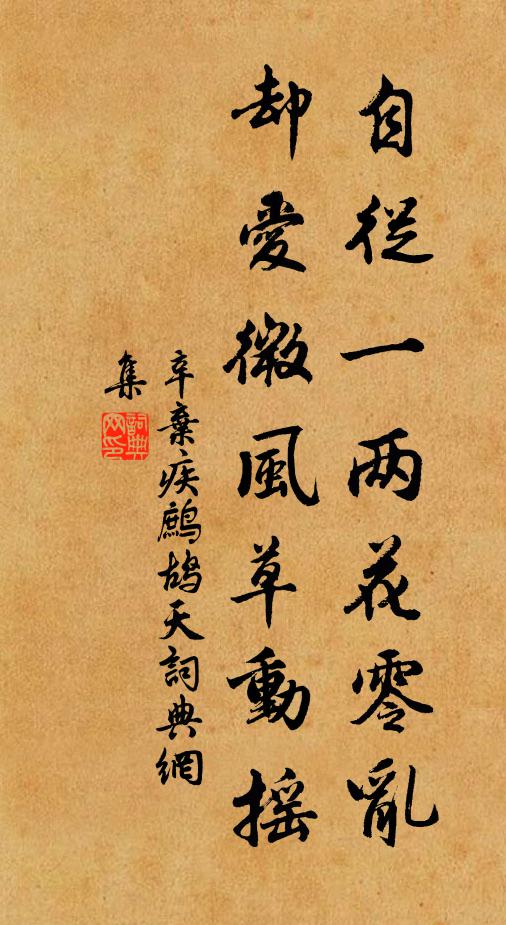 自從一两花零亂
却愛微風草動摇
辛棄疾鷓鴣天詞典網
集
詞典网印